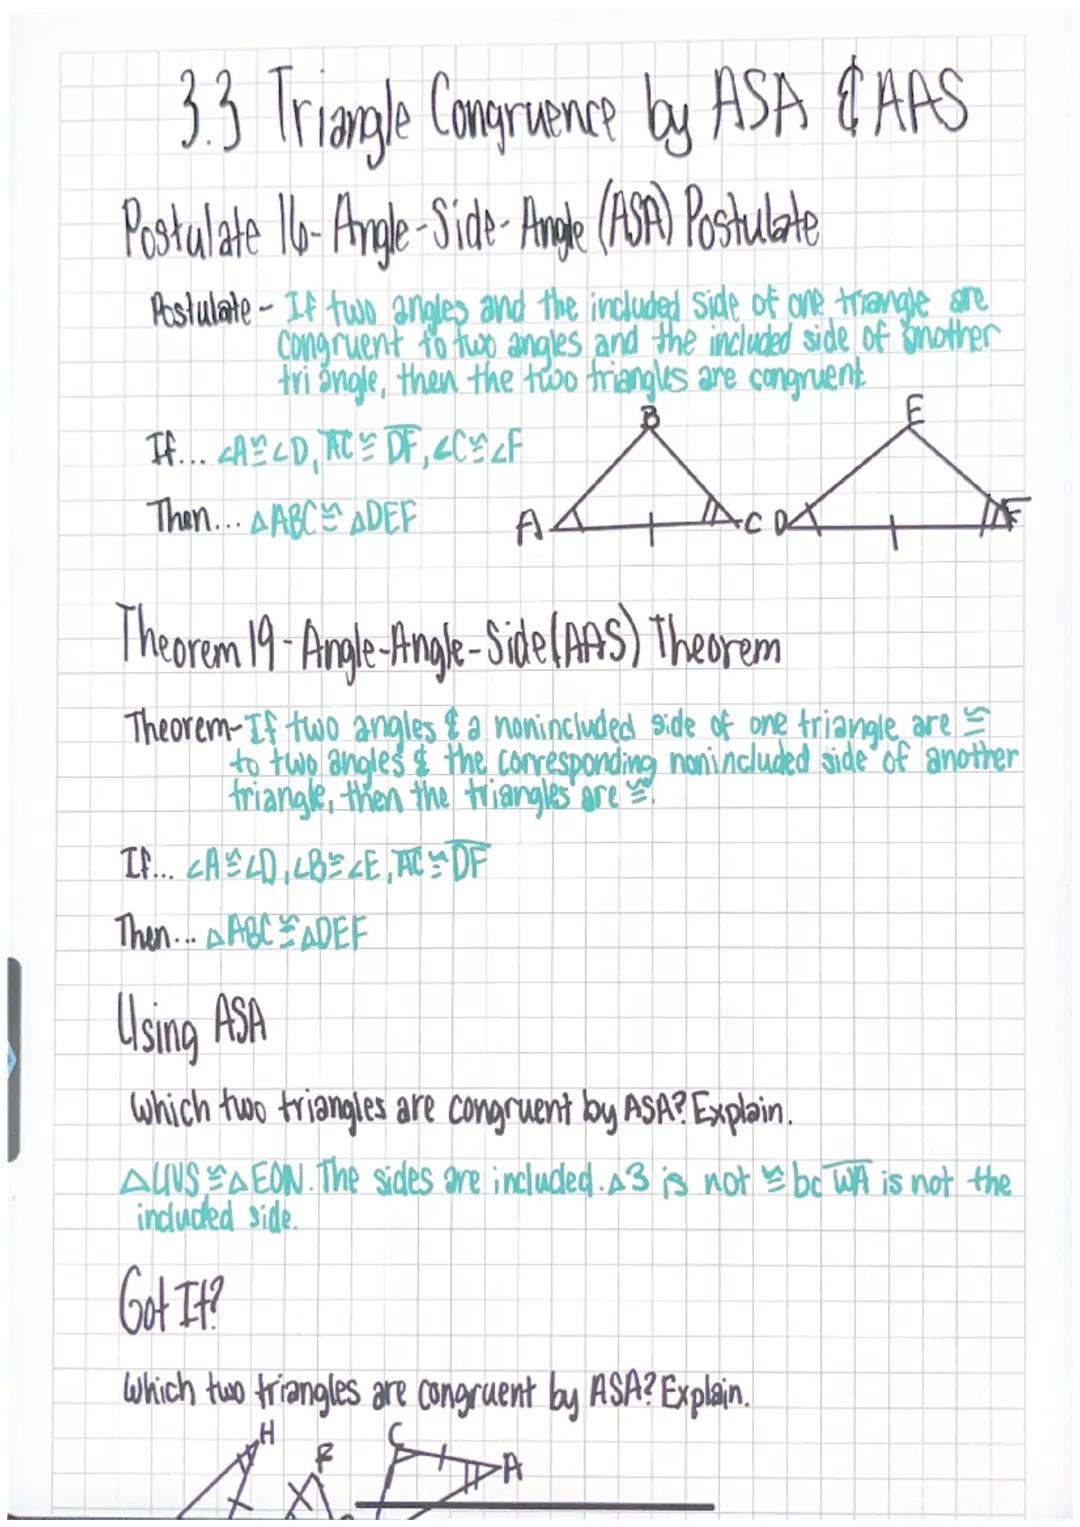 3.3 Triangle Congruence by ASA & AAS
Postulate 16- Angle-Side-Angle (ASA) Postulate
Postulate - If two angles and the included side of one triangle are
congruent to two angles and the included side of another
triangle, then the two triangles are congruent.
If... ∠A≅∠D, AC ≅ DF, ∠C≅∠F
Then... △ABC≅△DEF
B
E
A
C
D
F
Theorem 19-Angle-Angle-Side (AAS) Theorem
Theorem-If two angles & a nonincluded side of one triangle are ≅
to two angles & the corresponding nonincluded side of another
triangle, then the triangles are ≅.
If... ∠A≅∠D, ∠B≅∠E, AC≅DF
Then... △ABC≅△DEF
Using ASA
Which two triangles are congruent by ASA? Explain.
△UVS≅△EON. The sides are included. △3 is not ≅ bc WA is not the
included side.
Got It?
Which two triangles are congruent by ASA? Explain.
H
F
C
A